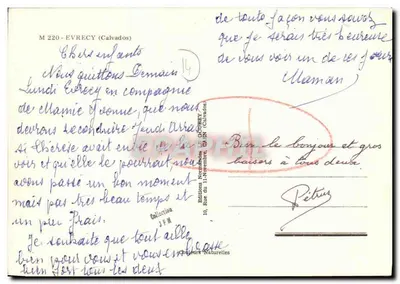 M 220 - EVRECY (Calvados)
Chers enfants
Nous quittons Demain
Lundi Evrecy en compagnie
de Mamie Yvonne, que nous
devrons reconduire Jeudi Arras
si Thérèse avait envie de la
voir et qu'elle le pourrait, nous
avons passé un bon moment
mais pas très beau temps et
un peu frais.
Je souhaite que tout aille
bien pour vous et vous embrasse
bien fort tous les deux
de toute façon vous savez
que je serais très heureuse
de vous voir un de ces jours
Maman
Bien le bonjour et gros
baisers à tous deux.
Pétrus
Editions Normandes LE GOUBEY
10, Rue du 11-Novembre, CAEN (Calvados)
Collection
Couleurs Naturelles